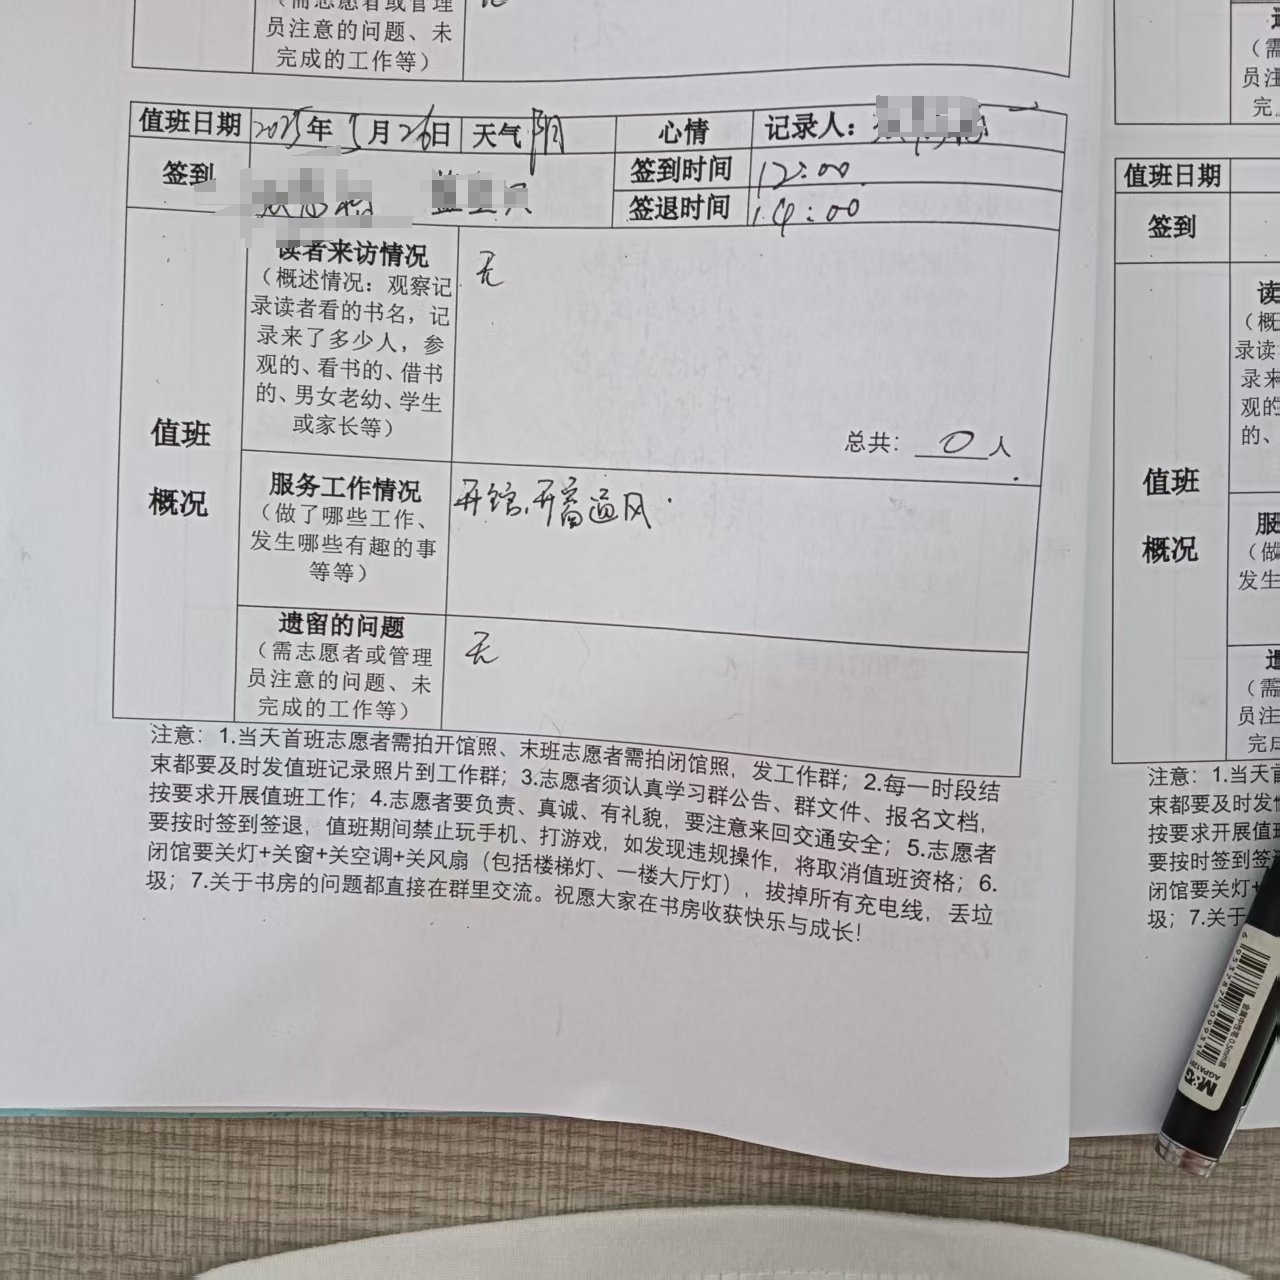 （需志愿者或管理
员注意的问题、未
完成的工作等）
值班日期 2025年 月26日 天气 阴 心情 记录人：
签到 签到时间 12:00
签退时间 14:00
读者来访情况
（概述情况：观察记
录读者看的书名，记
录来了多少人，参
观的、看书的、借书
的、男女老幼、学生
或家长等）
无
总共： 0 人
值班
概况
服务工作情况
（做了哪些工作、
发生哪些有趣的事
等等）
开馆、开窗通风.
遗留的问题
（需志愿者或管理
员注意的问题、未
完成的工作等）
无
注意：1.当天首班志愿者需拍开馆照、末班志愿者需拍闭馆照，发工作群；2.每一时段结
束都要及时发值班记录照片到工作群；3.志愿者须认真学习群公告、群文件、报名文档，
按要求开展值班工作；4.志愿者要负责、真诚、有礼貌，要注意来回交通安全；5.志愿者
要按时签到签退，值班期间禁止玩手机、打游戏，如发现违规操作，将取消值班资格；6.
闭馆要关灯+关窗+关空调+关风扇（包括楼梯灯、一楼大厅灯），拔掉所有充电线，丢垃
圾；7.关于书房的问题都直接在群里交流。祝愿大家在书房收获快乐与成长！
（需
员注
完
值班日期
签到
读
（概
录读
录来
观的
的、
值班
概况
服
（做
发生
遗
（需
员注
完成
注意：1.当天首
束都要及时发值
按要求开展值班
要按时签到签
闭馆要关灯+
圾；7.关于
6953787309957
金属中性笔0.5mm黑
M&G